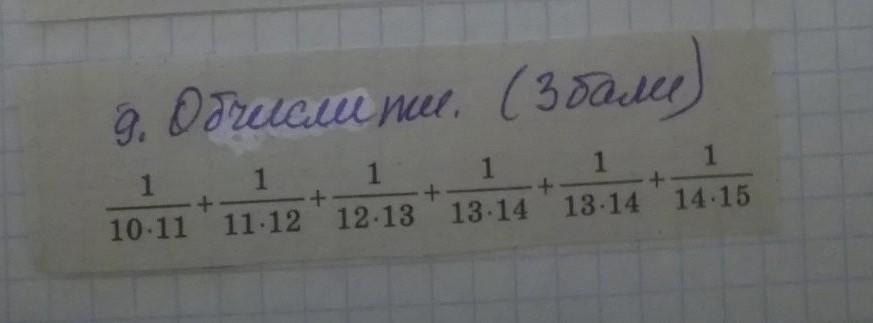 9. Обчислити. (3 бали)
1/(10·11) + 1/(11·12) + 1/(12·13) + 1/(13·14) + 1/(13·14) + 1/(14·15)